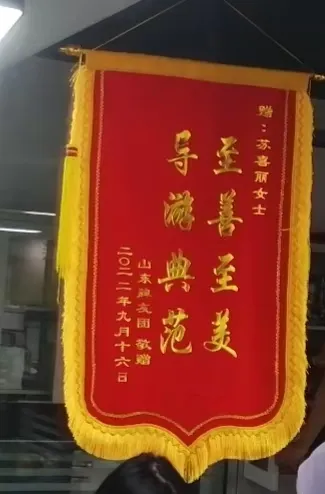 赠：苏喜丽女士
至善至美
导游典范
山东 友团 敬赠
二〇二二年九月十六日